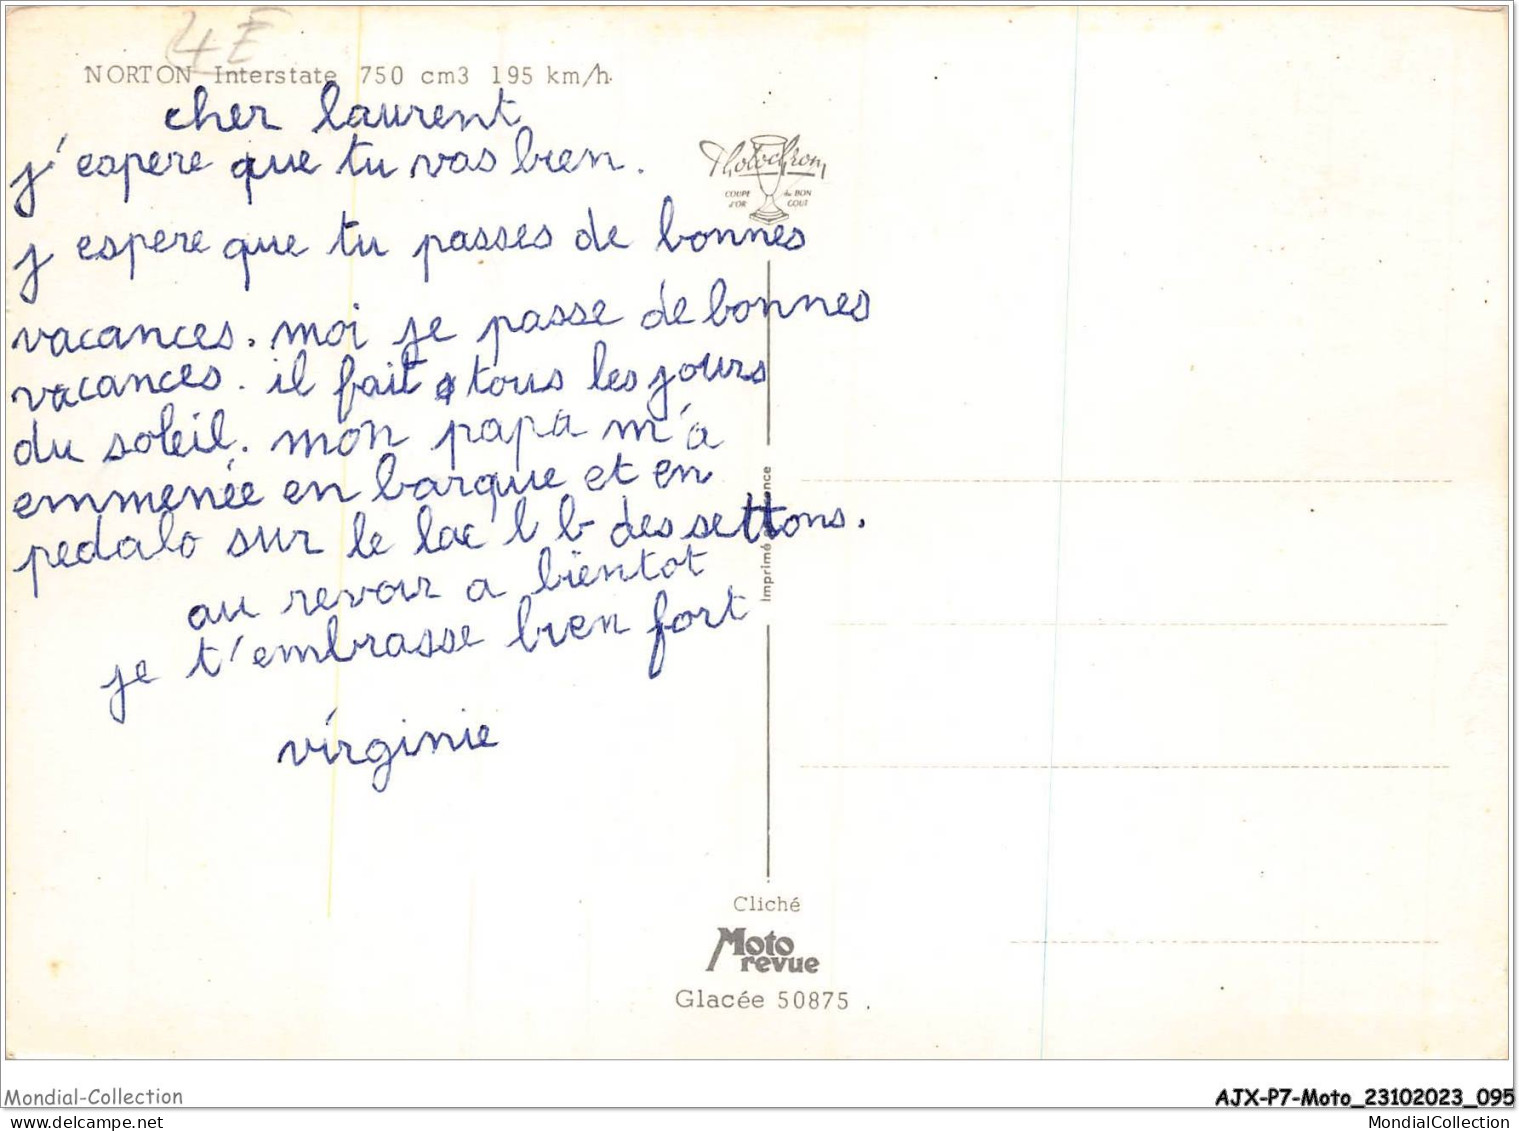 4E
NORTON Interstate 750 cm3 195 km/h.
cher laurent
j'espere que tu vas bien.
j espere que tu passes de bonnes
vacances. moi je passe de bonnes
vacances. il fait tous les jours
du soleil. mon papa m'a
emmenée en barque et en
pedalo sur le lac l b des settons.
au revoir a bientot
je t'embrasse bien fort
virginie
Photochrom
COUPE du BON
d'OR GOUT
Imprimé en France
Cliché
Moto
revue
Glacée 50875 .
Mondial-Collection
AJX-P7-Moto_23102023_095
MondialCollection